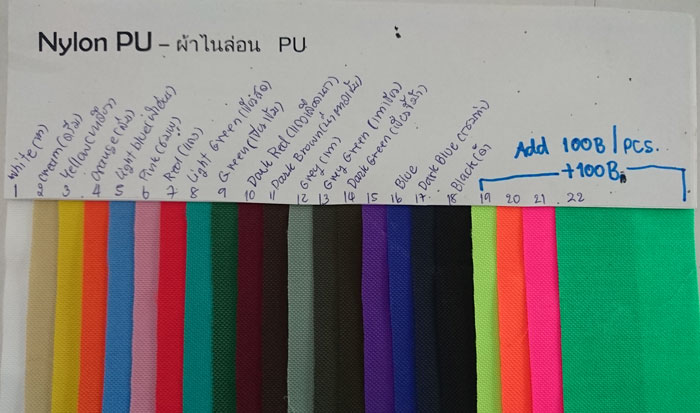 Nylon PU – ผ้าไนล่อน PU
White (ขาว)
Cream (ครีม)
Yellow (เหลือง)
Orange (ส้ม)
Light blue (ฟ้าอ่อน)
Pink (ชมพู)
Red (แดง)
Light Green (เขียวอ่อน)
Green (เขียวเข้ม)
Dark Red (แดงเลือดนก)
Dark Brown (น้ำตาลเข้ม)
Grey (เทา)
Grey Green (เทาเขียว)
Dark Green (เขียวขี้ม้า)
Blue
Dark Blue (กรมท่า)
Black (ดำ)
Add 100B / pcs.
+100B
1 2 3 4 5 6 7 8 9 10 11 12 13 14 15 16 17 18 19 20 21 22